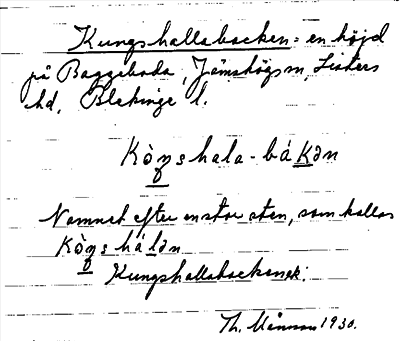 Kungshallabacken = en höjd
på Baggeboda, Jämshögs sn, Listers
hd, Blekinge l.
Kòŋshala-bákən
Namnet efter en stor sten, som kallas
Kòŋshálən
Kungshallabackanek.
Th. Månsson 1930.